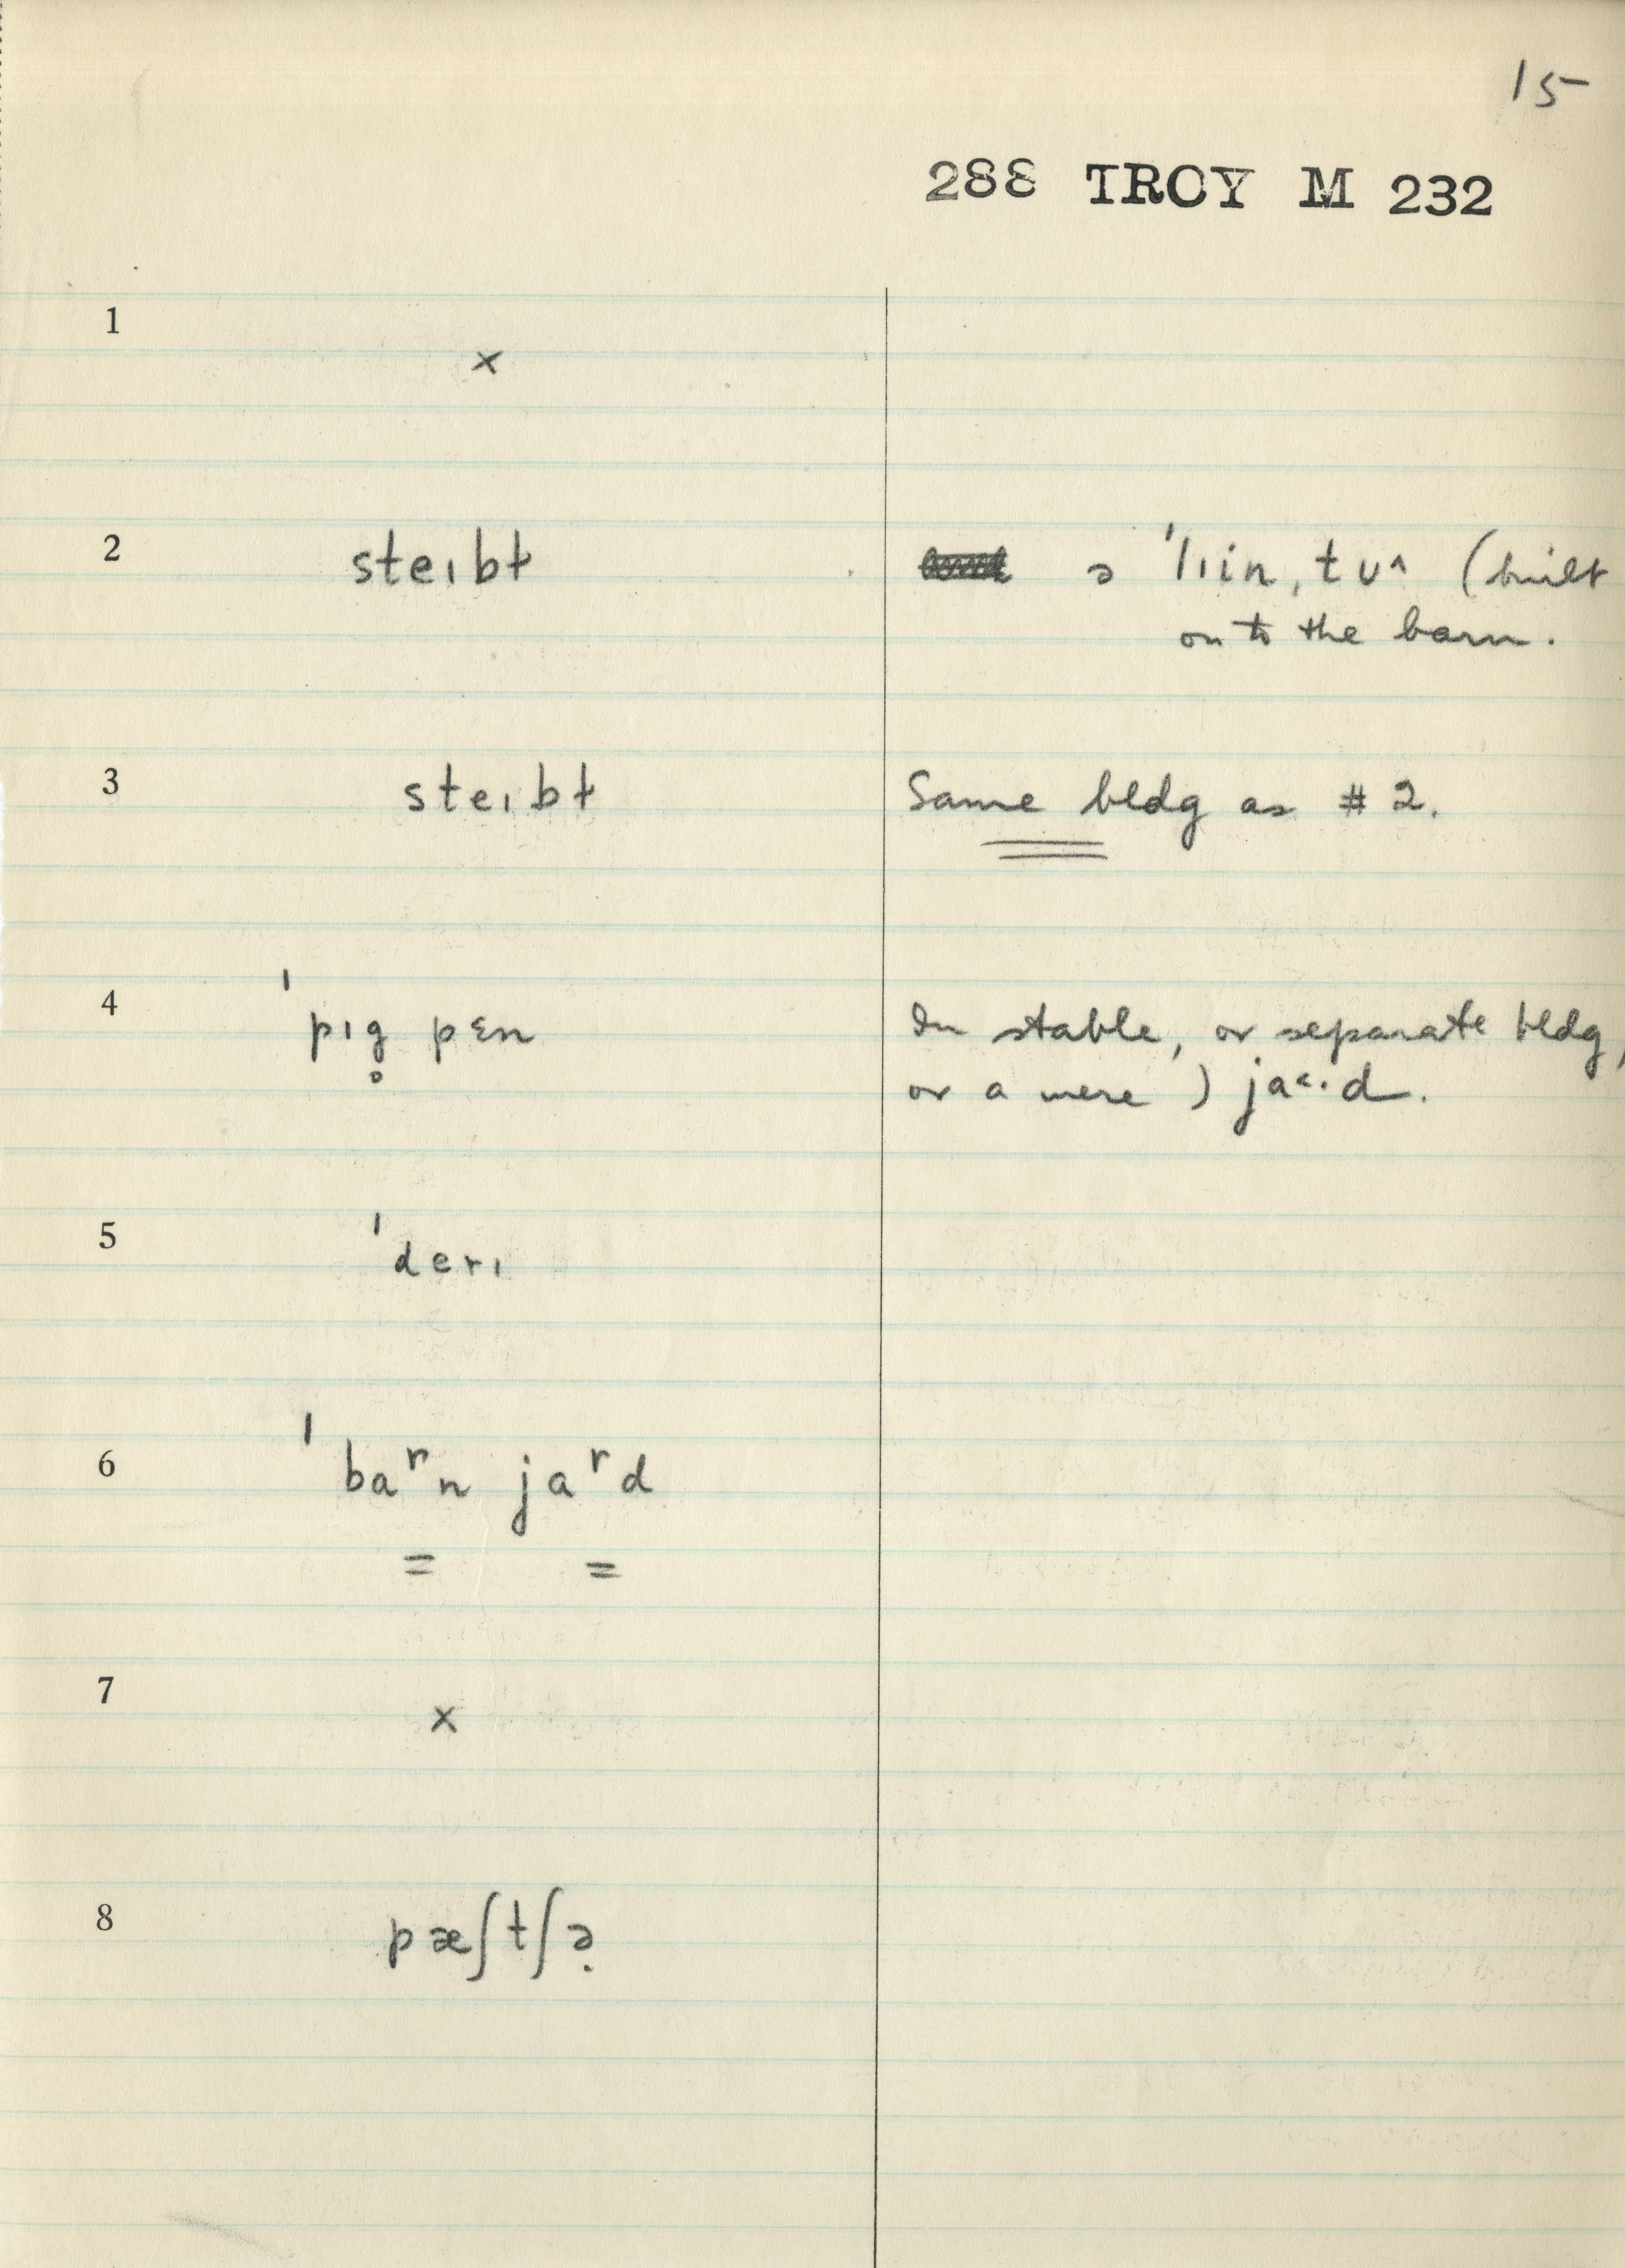 15
288 TROY M 232
1
x
2 steɪbɫ ə ˈlɪin, tʊ^ (built
on to the barn.
3 steɪbɫ Same bldg as # 2.
4 ˈpɪg̥ pɛn In stable, or separate bldg,
or a mere ) ja˂·d.
5 ˈderɪ
6 ˈbaʳn jaʳd
= =
7
x
8 pæʃtʃə̣